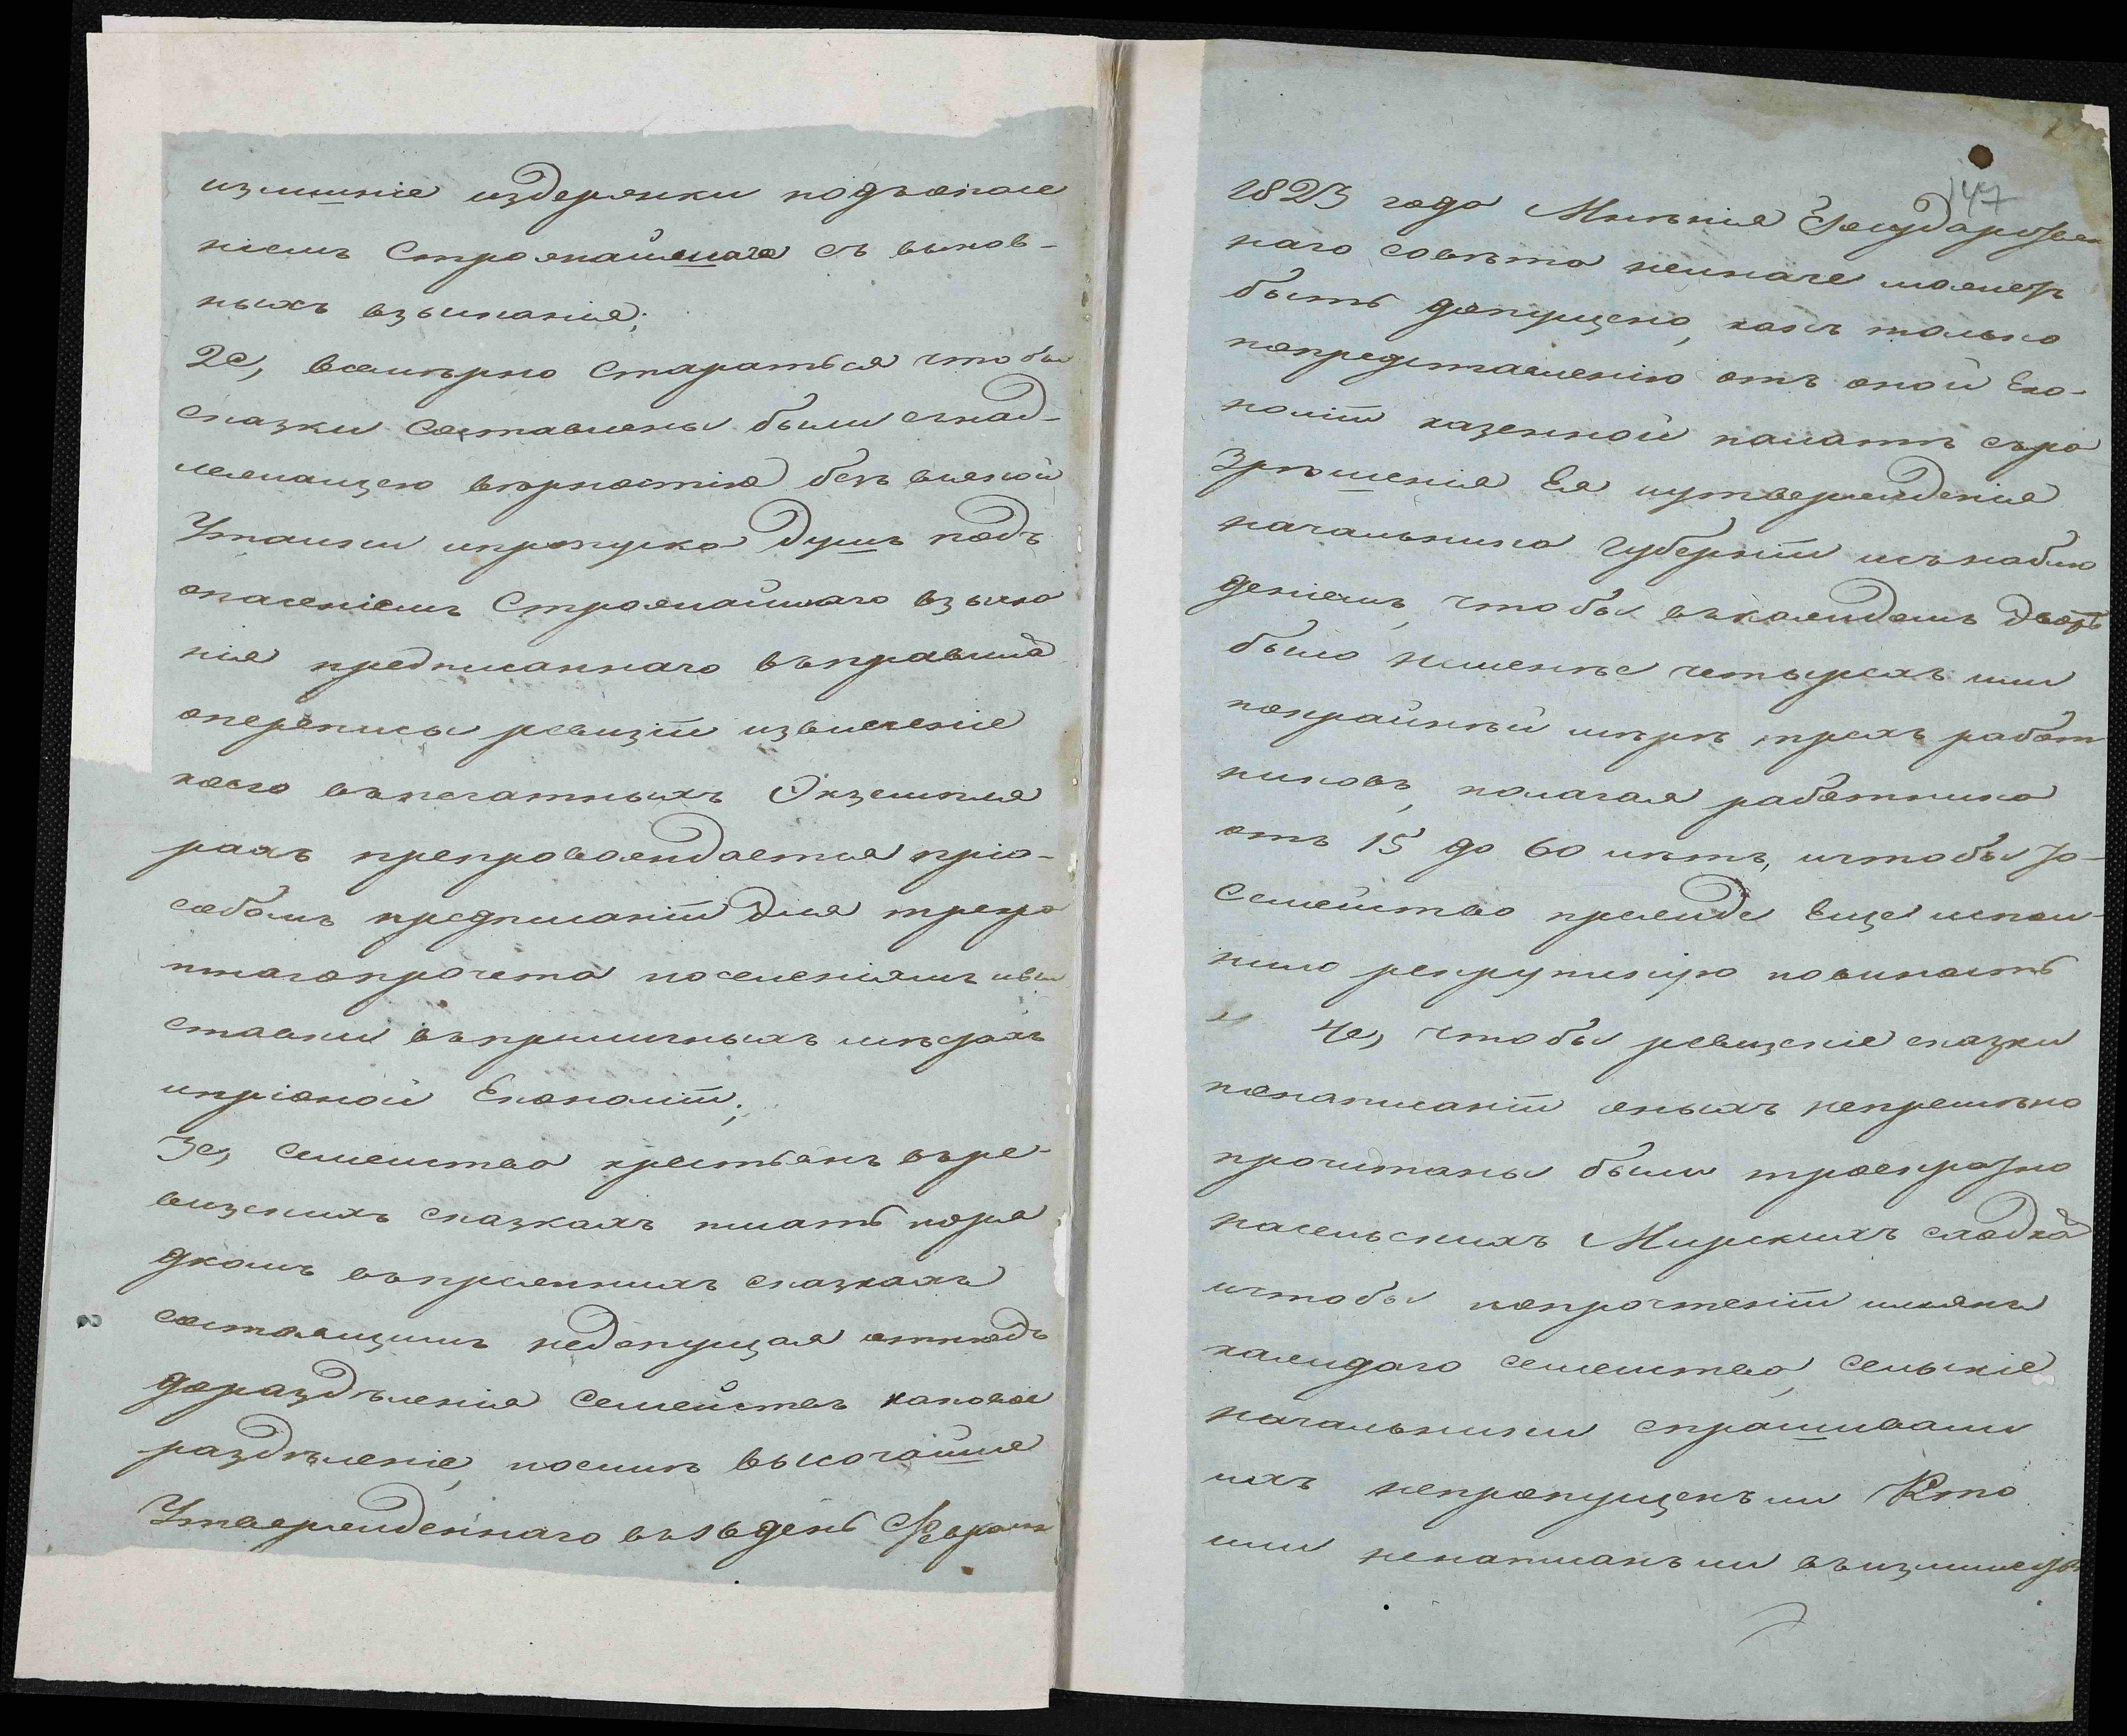 излишніе издержки подъопасе
ніемъ строжайшаго съ винов-
ныхъ взысканія;
2е, всемѣрно стараться чтобы
сказки составлены были снад-
лежащею вѣрностію безъ всякой
Утайки ипропуска душъ подъ
опасеніемъ строжайшаго взыска
нія предписаннаго въправила
опереписи ревизіи извлеченіе
коего впечатныхъ Экземпля
рахъ препровождается приo-
собомъ предписаніи для трекра
тнагопрочета поселеніямъ ивы
ставки въприличныхъ мѣстахъ
иприоной Економіи;
3е, семейства крестьянъ въре-
визскихъ сказкахъ писать поря
дкомъ въпрежнихъ сказкахъ
состоящимъ недопущая отнюдь
дораздѣленія семействъ каковое
раздѣленіе, посилѣ высочайше
Утвержденнаго въ 16 день Февраля
147
1823 года Мнѣнія Государствен
наго совѣта неиначе можетъ
быть допущено, какъ только
попредставленію отъ оной Еко-
номіи казенной палатѣ съра
зрѣшенія Ея иутвержденія
начальника губерніи исънаблю
деніемъ, чтобы въкаждомъ дворѣ
было неменѣе четырехъ или
покрайнѣй мѣрѣ трехъ работ
никовъ, полагая работника
отъ 15 до 60 лѣтъ, ичтобы то-
семейство прежде Еще испол-
нило рекрутскую повиность
4е, чтобы ревизскіе сказки
понаписаніи оныхъ непремѣнно
прочитаны были троекратно
насельскихъ Мирскихъ сходка
ичтобы попрочтеніи имянъ
каждаго семейства, сельскіе
начальники спрашивали
ихъ непропущенъ ли Кто
или ненаписанъ ли въизлишеств